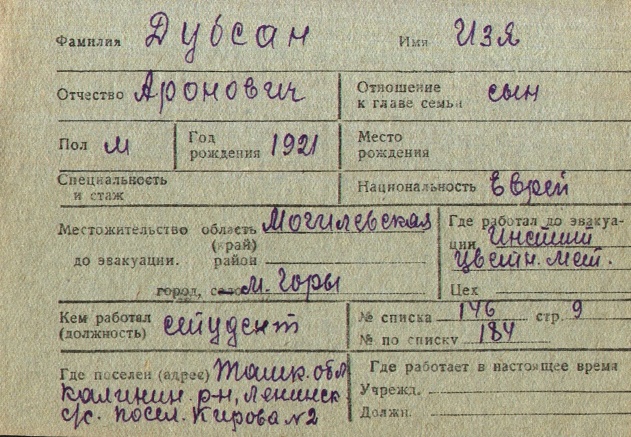 Фамилия Дубсан Имя Изя
Отчество Аронович Отношение к главе семьи сын
Пол м Год рождения 1921 Место рождения
Специальность и стаж Национальность Еврей
Местожительство область Могилевская Где работал до эвакуа-
(край) ции Инстит
до эвакуации. район Цветн. мет.
город, село м. Горы Цех
Кем работал (должность) студент № списка 146 стр. 9
№ по списку 184
Где поселен (адрес) Ташк. обл Где работает в настоящее время
Калинин. р-н, Ленинск Учрежд.
с/с. посел. Кирова № 2 Должн.